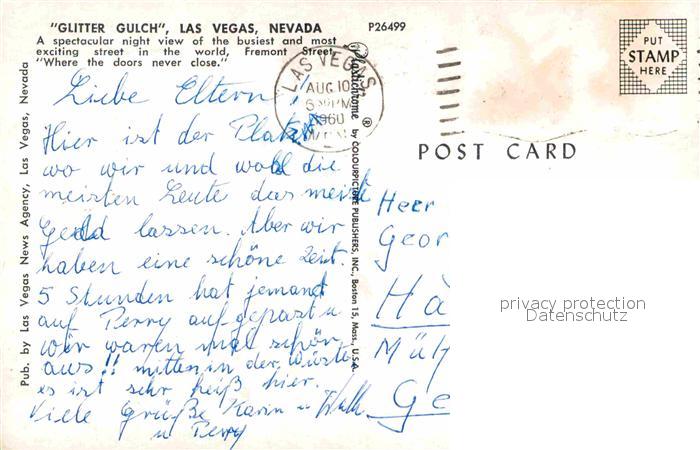 "GLITTER GULCH", LAS VEGAS, NEVADA
P26499
A spectacular night view of the busiest and most
exciting street in the world, Fremont Street,
"Where the doors never close."
Pub. by Las Vegas News Agency, Las Vegas, Nevada
Plastichrome ® by COLOURPICTURE PUBLISHERS, INC., Boston 15, Mass., U.S.A.
LAS VEGAS
AUG 10
PM
1960
PUT
STAMP
HERE
POST CARD
Liebe Eltern!
Hier ist der Platz
wo wir und wohl die
meisten Leute das meist
Geld lassen. Aber wir
haben eine schöne Zeit.
5 Stunden hat jemand
auf Perry aufgepasst u
wir waren mal schön
aus!! mitten in der Wüste
es ist sehr heiß hier.
Viele Grüße Karin u
u Perry
Herr
Geor
Hä
Müh
Ge
privacy protection
Datenschutz